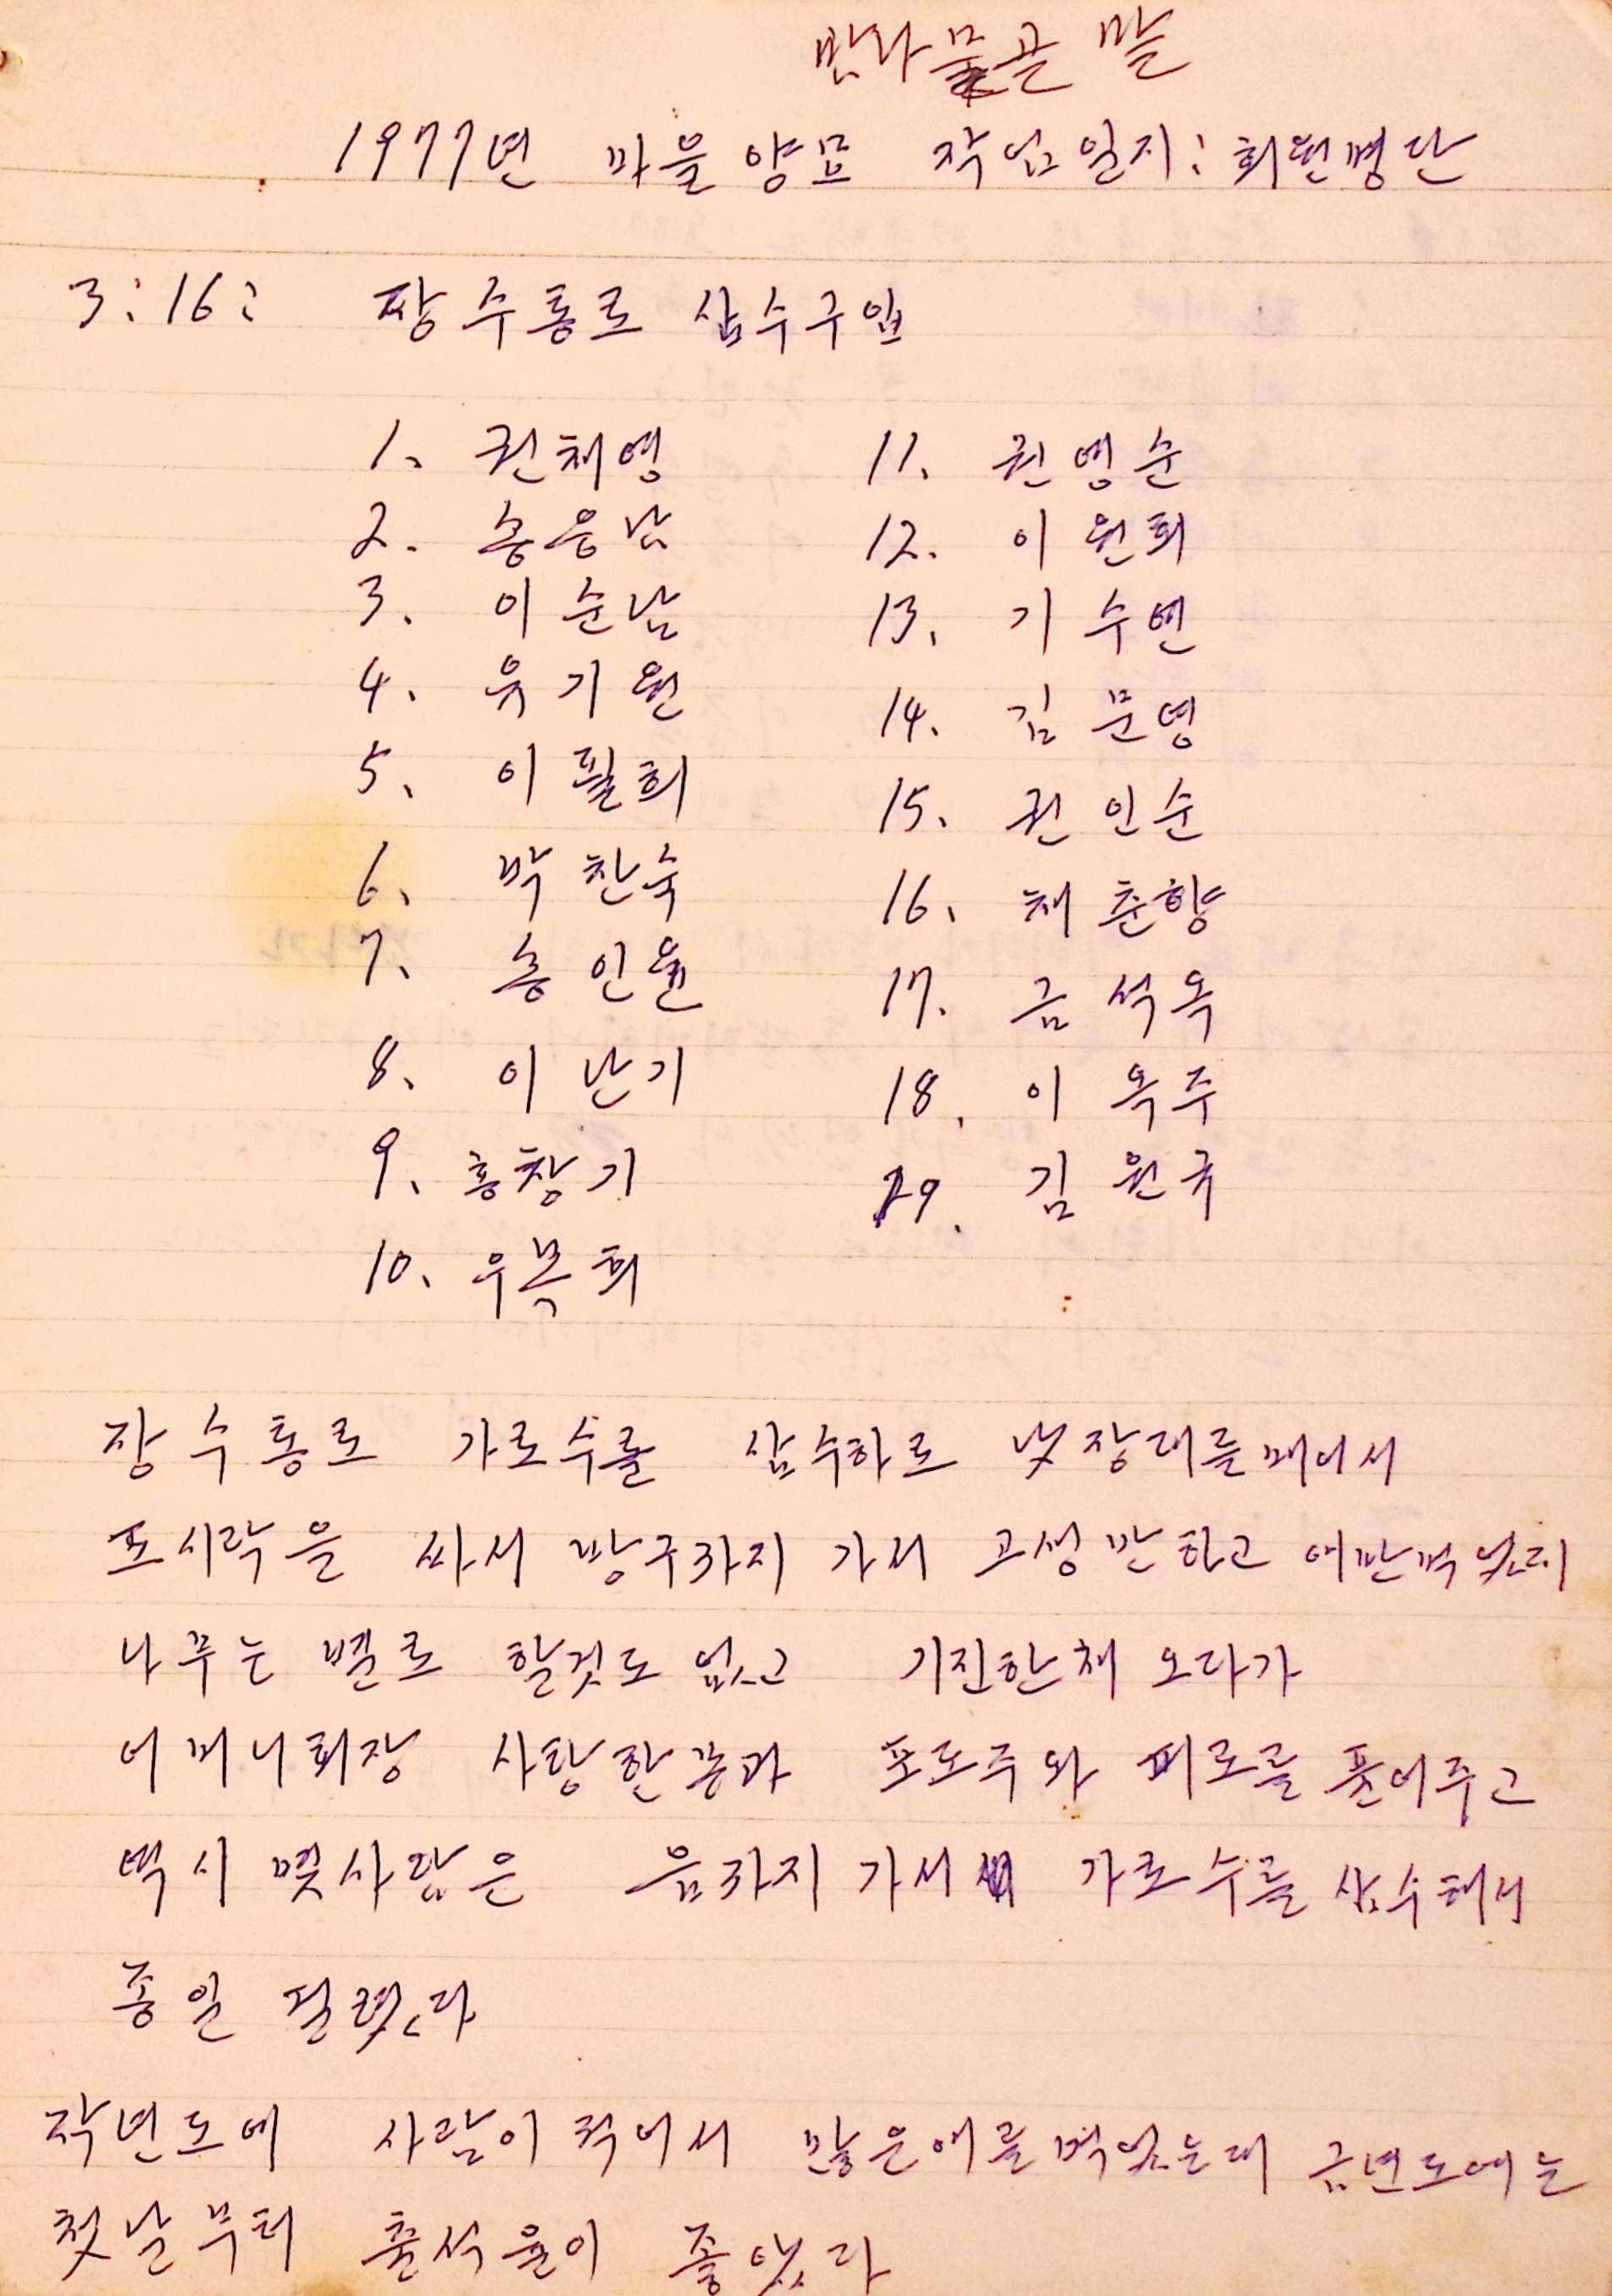 반나물골 말
1977년 마을양묘 작업일지: 회원명단
3:16: 장수통로 삽수구입
1. 권채영 11. 권영순
2. 송응남 12. 이원희
3. 이순남 13. 기수연
4. 유기원 14. 김문영
5. 이필희 15. 권인순
6. 박찬숙 16. 채춘향
7. 송인원 17. 금석옥
8. 이난기 18. 이옥주
9. 홍창기 19. 김원규
10. 우복희
장수통로 가로수를 삽수하로 낫장대를매서
도시락을 싸서 방구까지 가서 고생만하고 애만먹었지
나무는 별로 할것도 없고 기진한채 오다가
어머니회장 사탕한봉과 포도주와 피로를 풀어주고
역시 몇사람은 읍까지 가서 가로수를 삽수해서
종일 걸렸다
작년도에 사람이 적어서 많은애를먹었는대 금년도에는
첫날부터 출석율이 좋았다